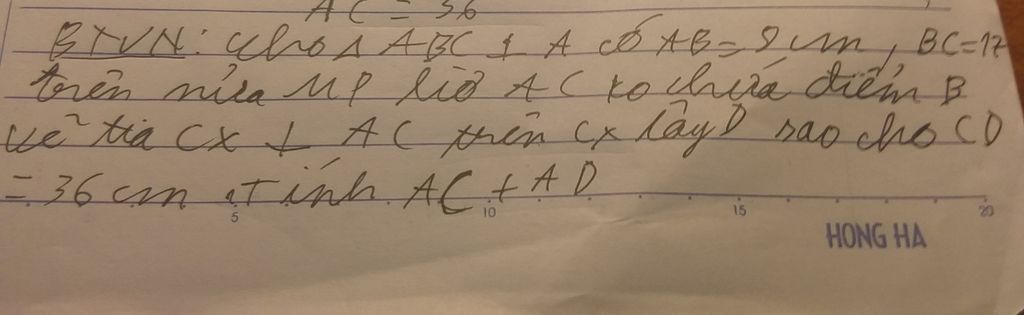 AC = 36
BTVN: Cho Δ ABC ⊥ A có AB = 8 cm, BC = 17
trên nửa MP bờ AC ko chứa điểm B
vẽ tia Cx ⊥ AC trên Cx lấy D sao cho CD
= 36 cm. Tính AC + AD
5 10 15 20
HONG HA